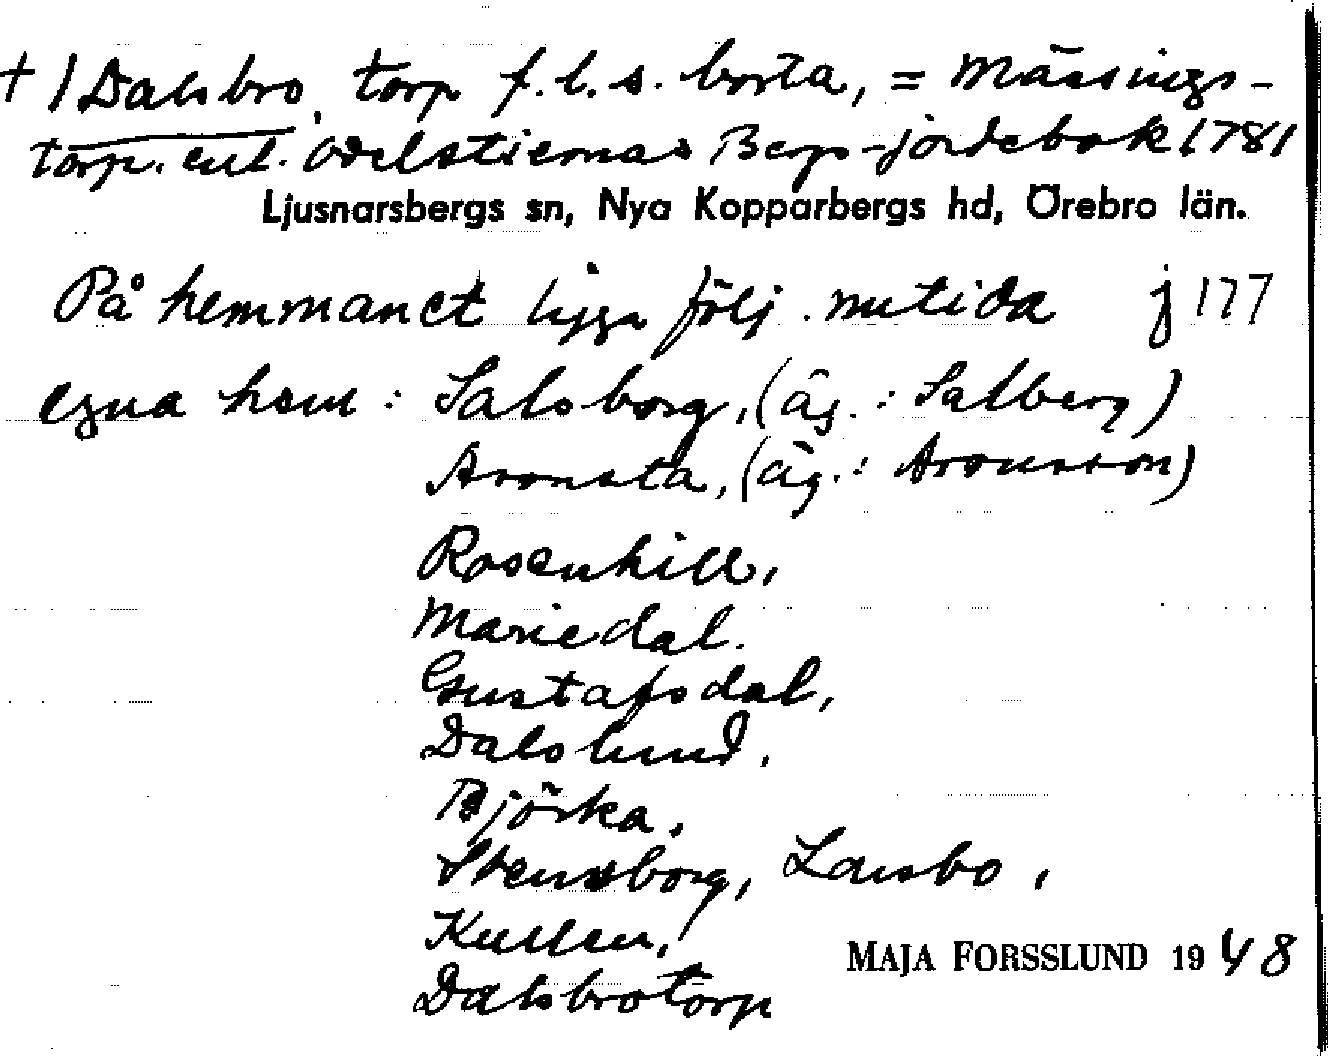 + / Dalsbro, torp f.l.s. borta, = Mässings-
torp. enl. Odelstiernas Bergs-jordebok 1781
Ljusnarsbergs sn, Nya Kopparbergs hd, Örebro län.
På hemmanet ligga följ. nutida j 177
egna hem: Salsborg, (äg.: Salberg)
Aronsta, (äg.: Aronsson)
Rosenhill,
Mariedal.
Gustafsdal,
Dalslund,
Björka,
Stensborg, Larsbo,
Kullen,
Dalsbrotorp
MAJA FORSSLUND 1948